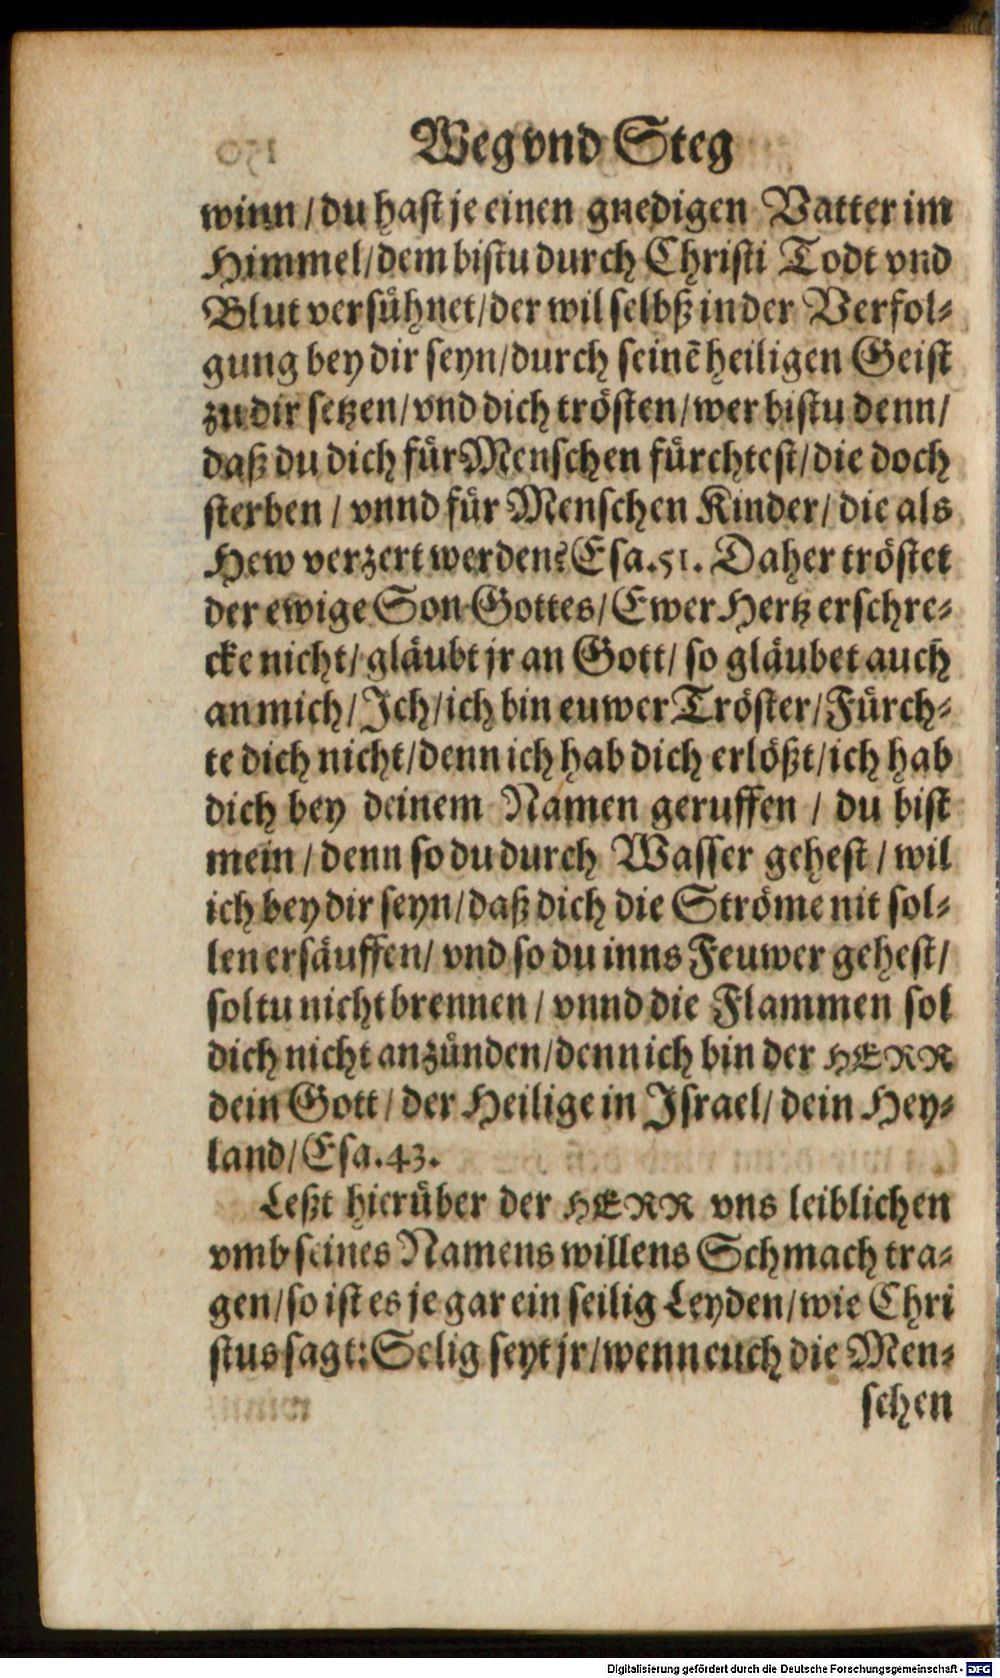 Weg vnd Steg
winn / du hast je einen gnedigen Vatter im
Himmel / dem bistu durch Christi Todt vnd
Blut versühnet / der wil selbß in der Verfol-
gung bey dir seyn / durch seinē heiligen Geist
zu dir setzen / vnd dich trösten / wer bistu denn /
daß du dich für Menschen fürchtest / die doch
sterben / vnnd für Menschen Kinder / die als
Hew verzert werden? Esa. 51. Daher tröstet
der ewige Son Gottes / Ewer Hertz erschre-
cke nicht / gläubt jr an Gott / so gläubet auch
an mich / Ich / ich bin euwer Tröster / Fürch-
te dich nicht / denn ich hab dich erlößt / ich hab
dich bey deinem Namen geruffen / du bist
mein / denn so du durch Wasser gehest / wil
ich bey dir seyn / daß dich die Ströme nit sol-
len ersäuffen / vnd so du inns Feuwer gehest /
soltu nicht brennen / vnnd die Flammen sol
dich nicht anzünden / denn ich bin der HERR
dein Gott / der Heilige in Israel / dein Hey-
land / Esa. 43.
Leßt hierüber der HERR vns leiblichen
vmb seines Namens willens Schmach tra-
gen / so ist es je gar ein seilig Leyden / wie Chri
stus sagt: Selig seyt jr / wenn euch die Men-
schen
Digitalisierung gefördert durch die Deutsche Forschungsgemeinschaft - DFG